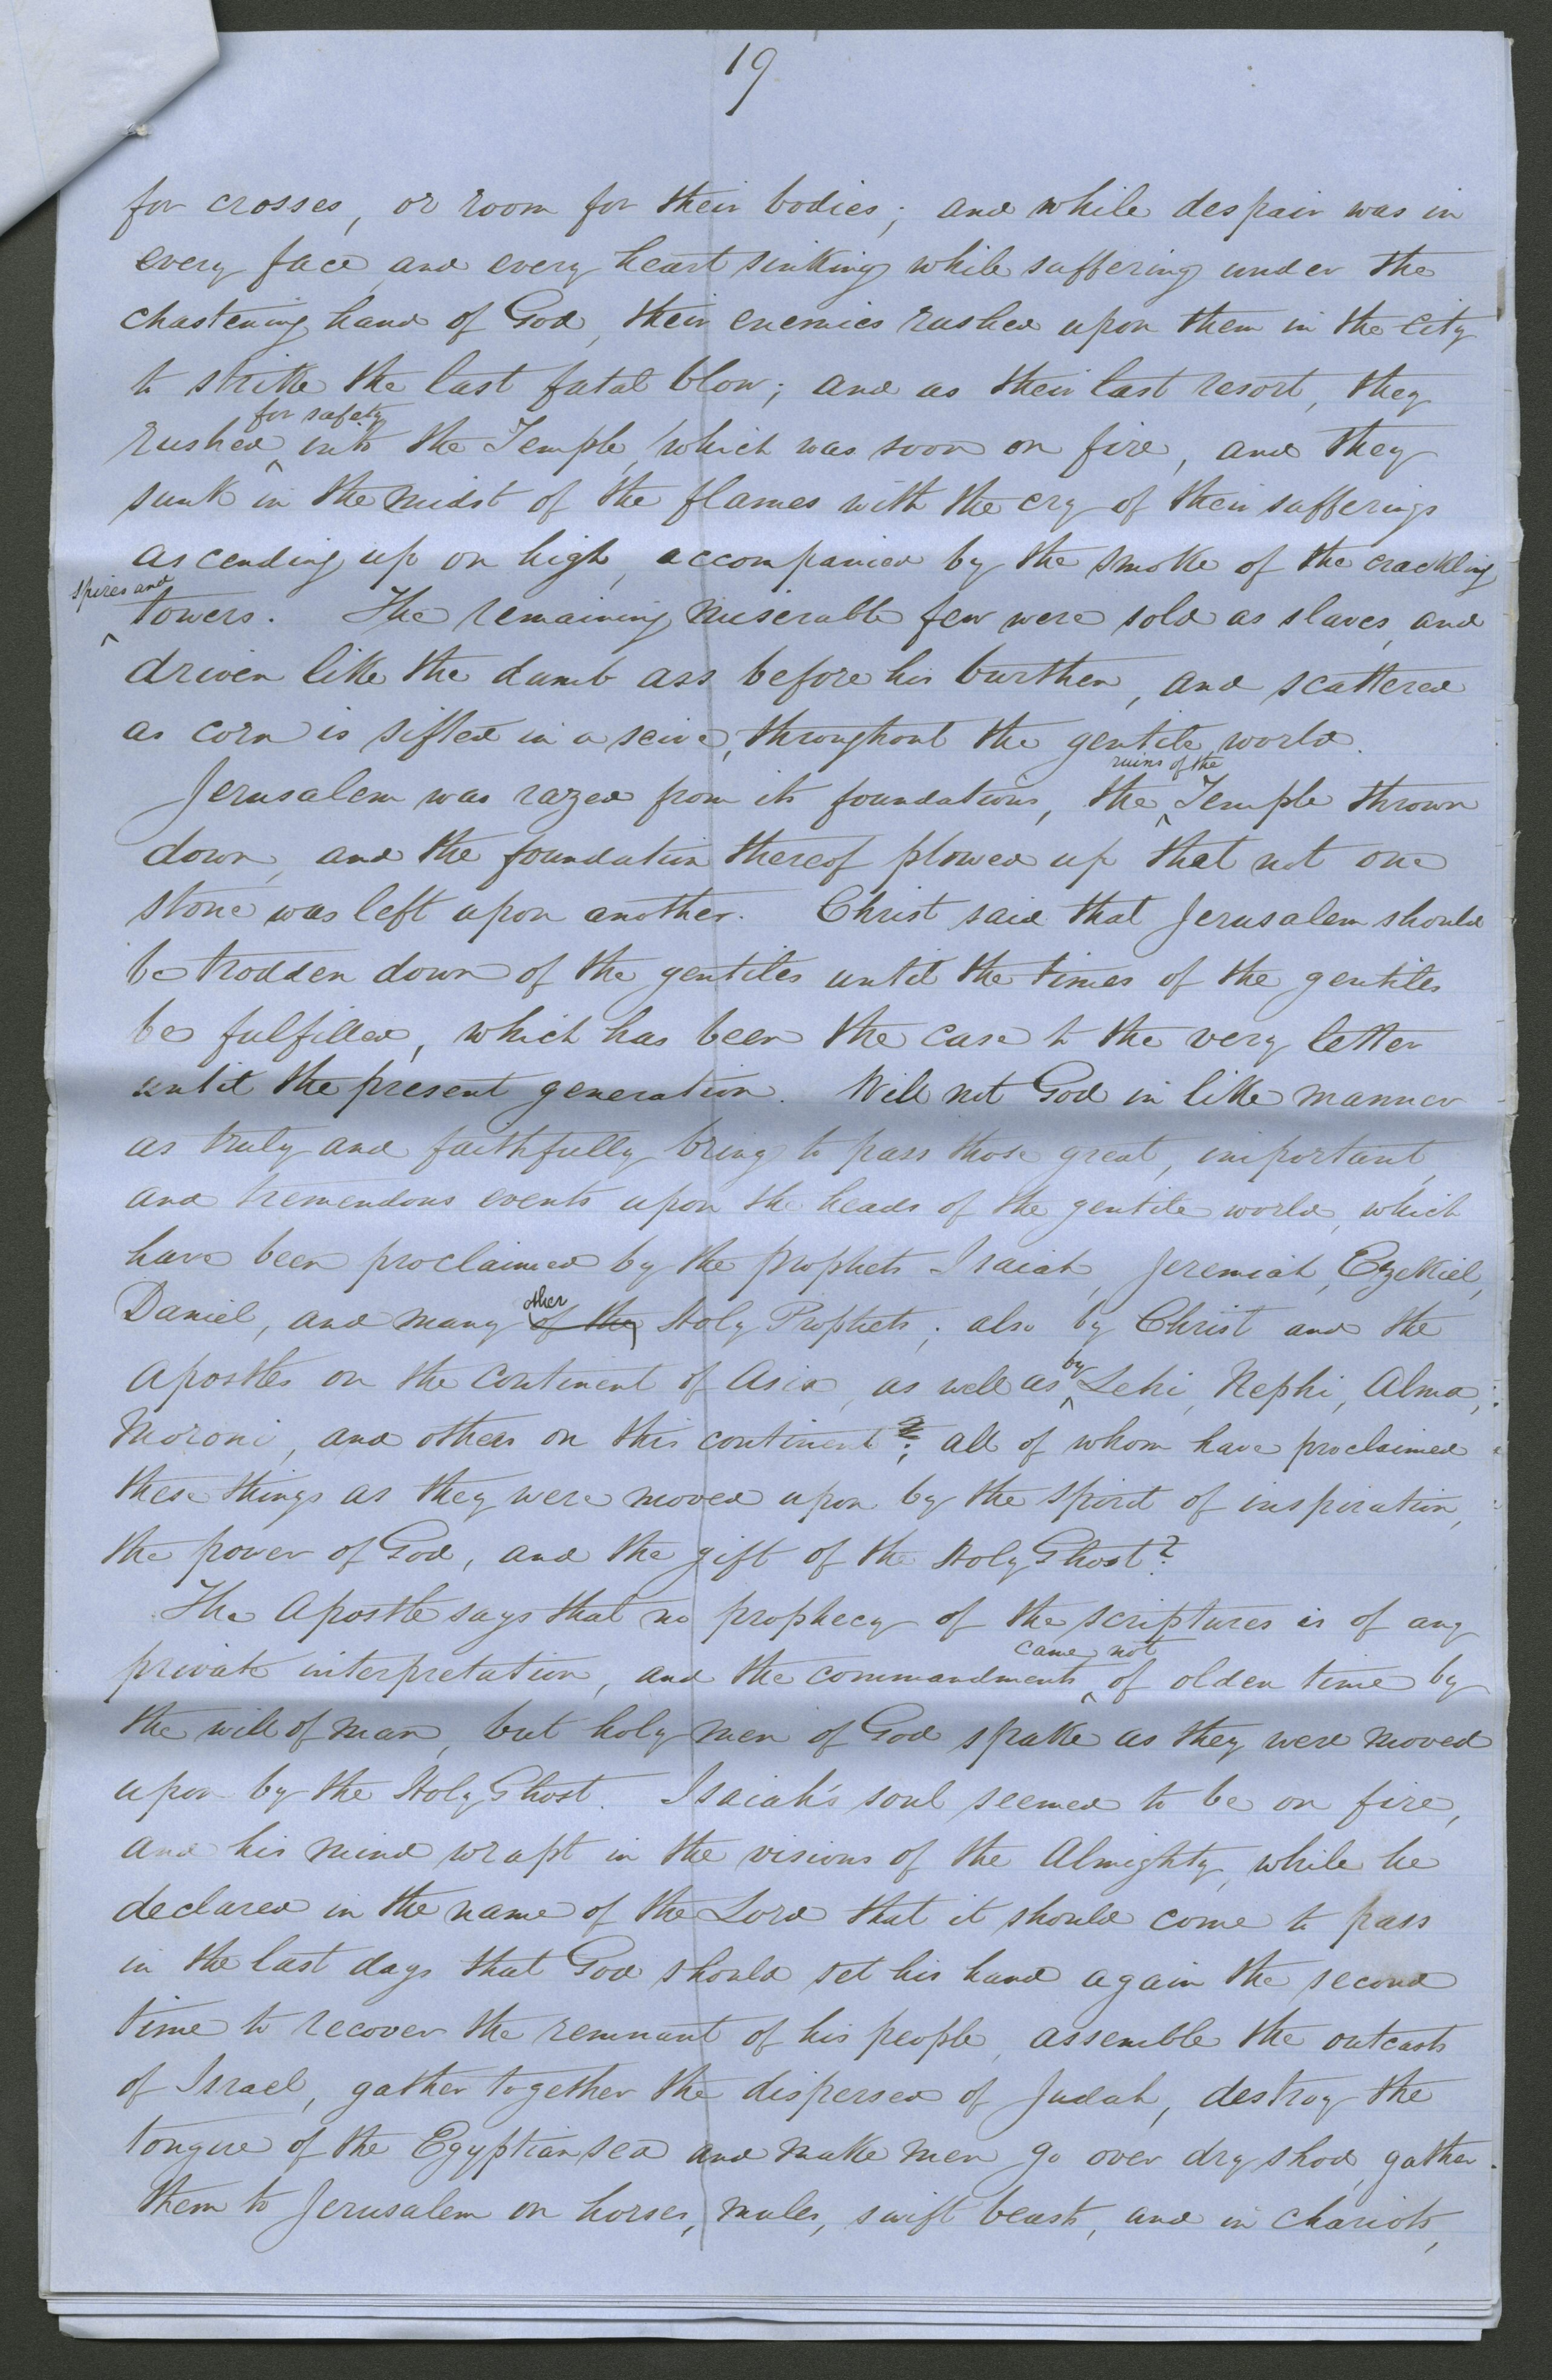 19
for crosses, or room for their bodies; and while despair was in
every face, and every heart sinking while suffering under the
chastening hand of God, their enemies rushed upon them in the city
to strike the last fatal blow; and as their last resort, they
rushed for safety into the Temple, which was soon on fire, and they
sunk in the midst of the flames with the cry of their sufferings
ascending up on high, accompanied by the smoke of the crackling
spires and towers. The remaining miserable few were sold as slaves, and
driven like the dumb ass before his burthen, and scattered
as corn is sifted in a seive, throughout the gentile world.
Jerusalem was razed from its foundations, the ruins of the Temple thrown
down, and the foundation thereof plowed up that not one
stone was left upon another. Christ said that Jerusalem should
be trodden down of the gentiles until the times of the gentiles
be fulfilled, which has been the case to the very letter
until the present generation. Will not God in like manner
as truly and faithfully bring to pass those great, important,
and tremendous events upon the heads of the gentile world, which
have been proclaimed by the prophets Isaiah, Jeremiah, Ezekiel,
Daniel, and many of the other Holy Prophets; also by Christ and the
Apostles on the continent of Asia, as well as by Lehi, Nephi, Alma,
Moroni, and others on this continent; all of whom have proclaimed
these things as they were moved upon by the spirit of inspiration,
the power of God, and the gift of the Holy Ghost?
The Apostle says that no prophecy of the scriptures is of any
private interpretation, and the commandments came not of olden time by
the will of man, but holy men of God spake as they were moved
upon by the Holy Ghost. Isaiah's soul seemed to be on fire,
and his mind wrapt in the visions of the Almighty, while he
declared in the name of the Lord that it should come to pass
in the last days that God should set his hand again the second
time to recover the remnant of his people, assemble the outcasts
of Israel, gather together the dispersed of Judah, destroy the
tongue of the Egyptian sea and make men go over dry shod, gather
them to Jerusalem on horses, mules, swift beasts, and in chariots,